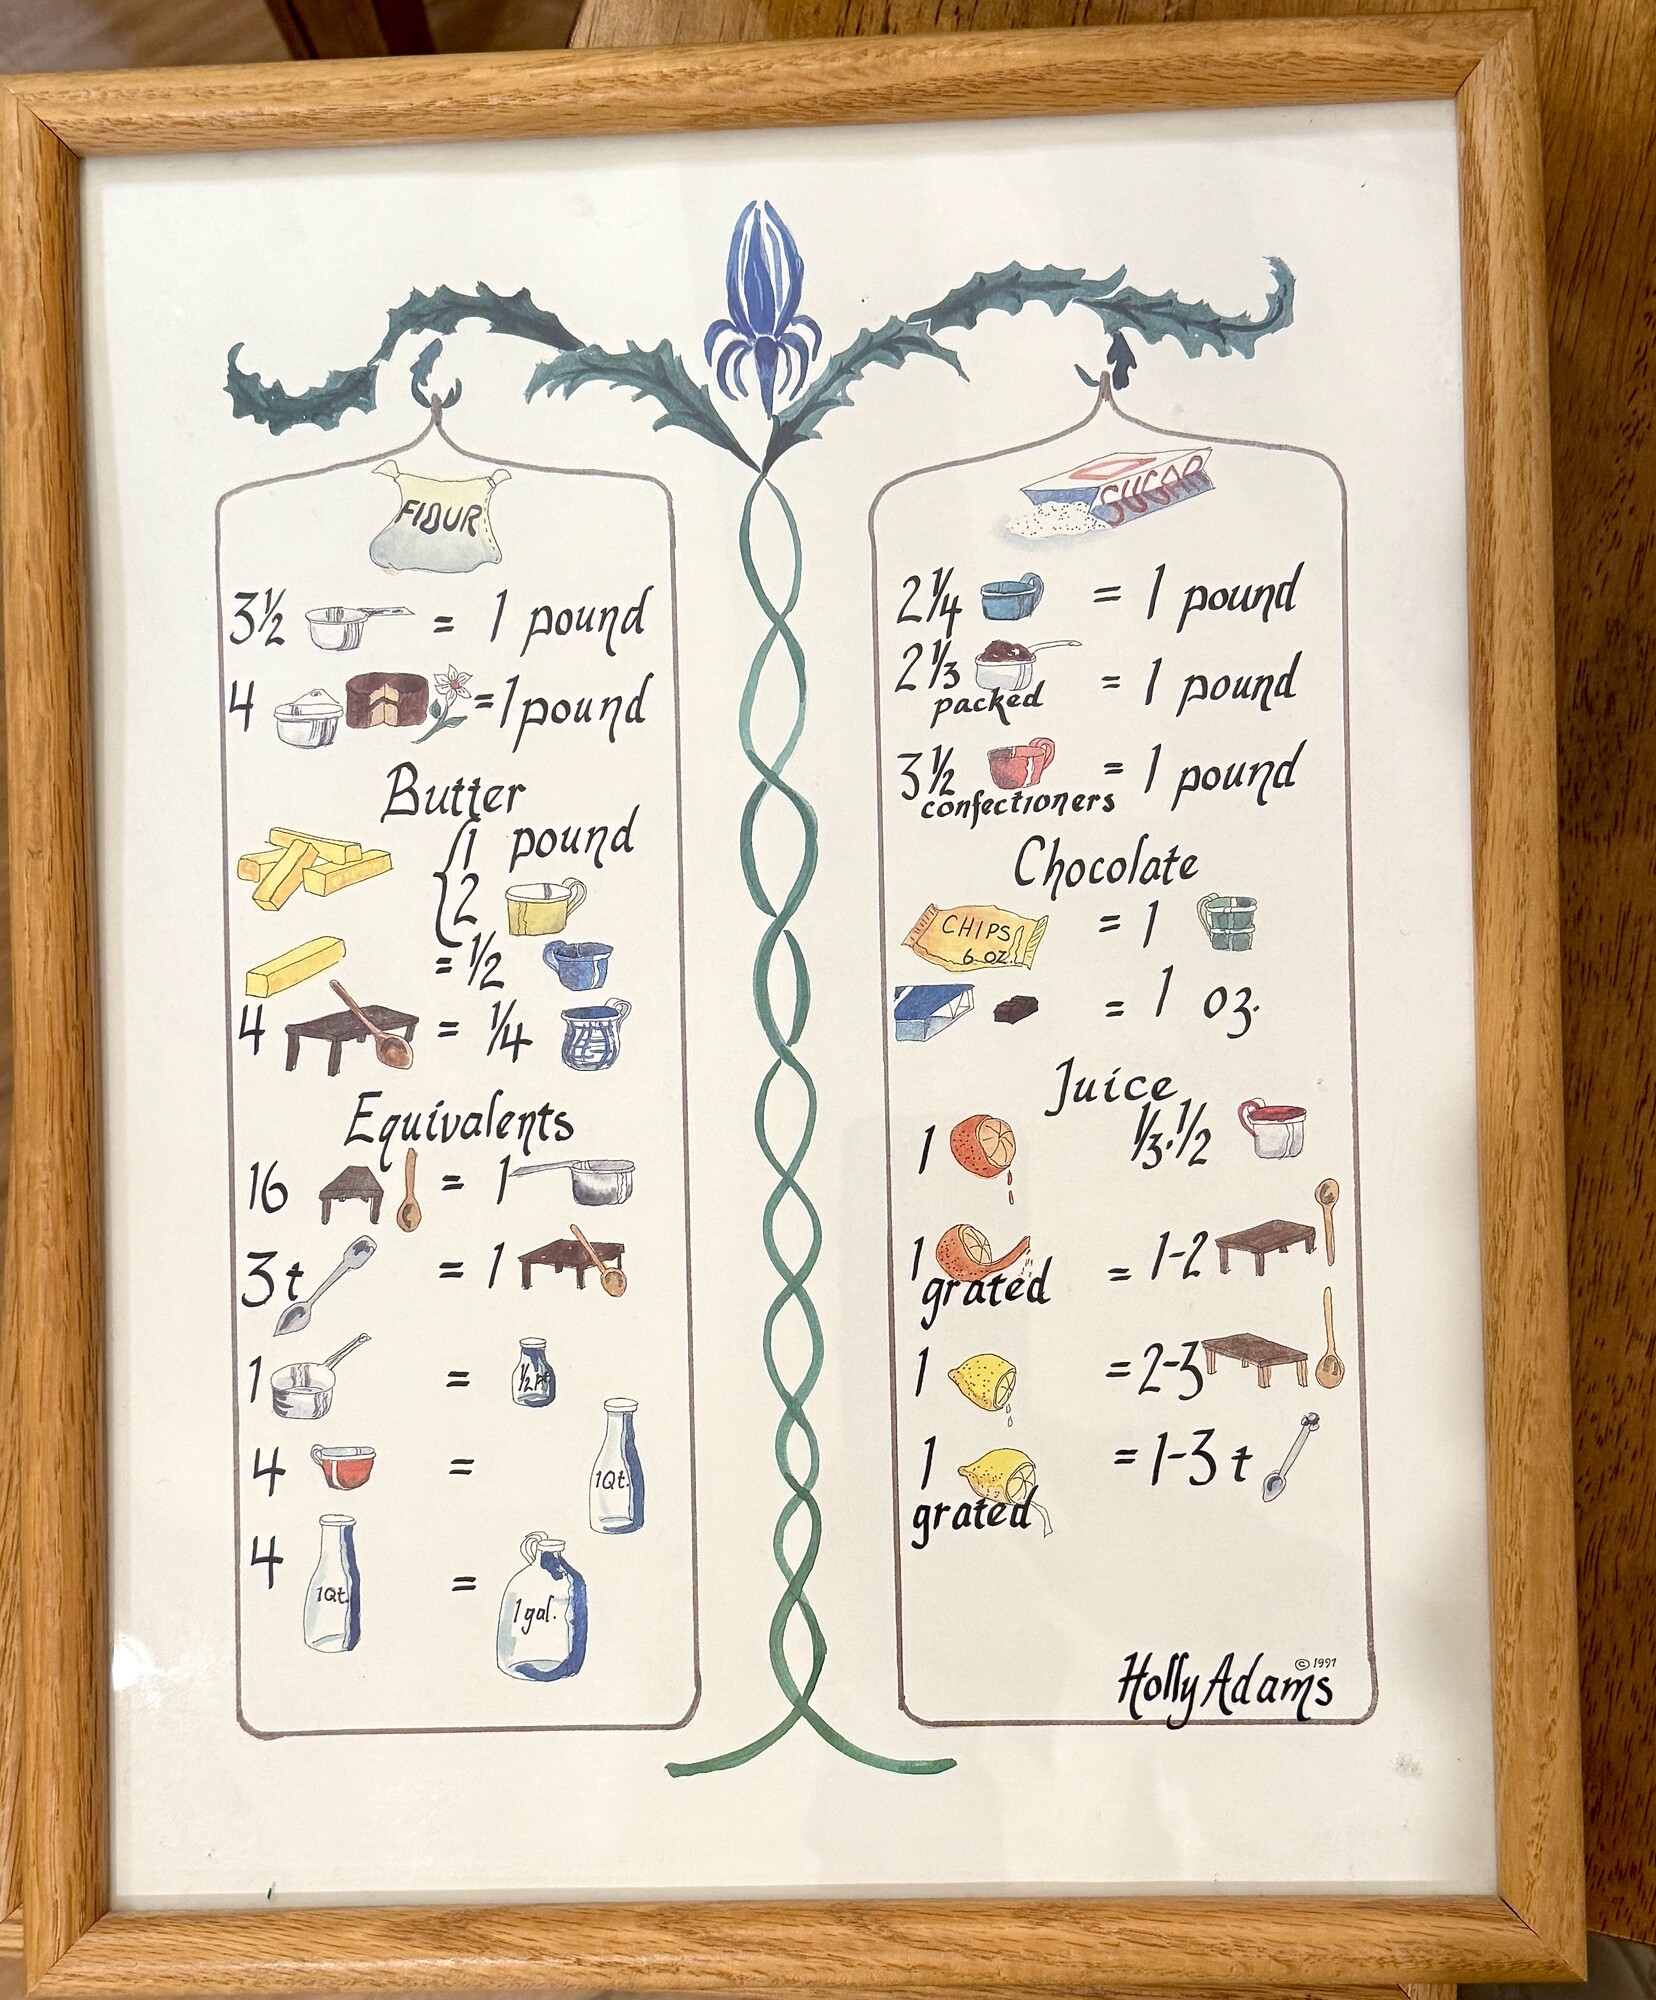 FLOUR
3½ = 1 pound
4 = 1 pound
Butter
1 pound
2
= ½
4 = ¼
Equivalents
16 = 1
3 t = 1
1 = ½ Pt
4 = 1Qt.
4 1Qt. = 1 gal.
SUGAR
2¼ = 1 pound
2⅓ = 1 pound
packed
3½ = 1 pound
confectioners
Chocolate
CHIPS = 1
6 OZ.
= 1 oz.
Juice
1 ⅓-½
1 = 1-2
grated
1 = 2-3
1 = 1-3 t
grated
© 1997
Holly Adams